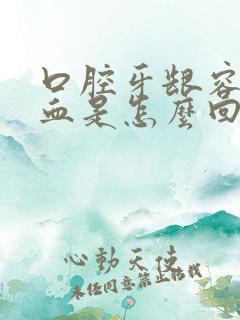 口腔牙龈容
血是怎麼回
心動天使
未经同意禁止转载